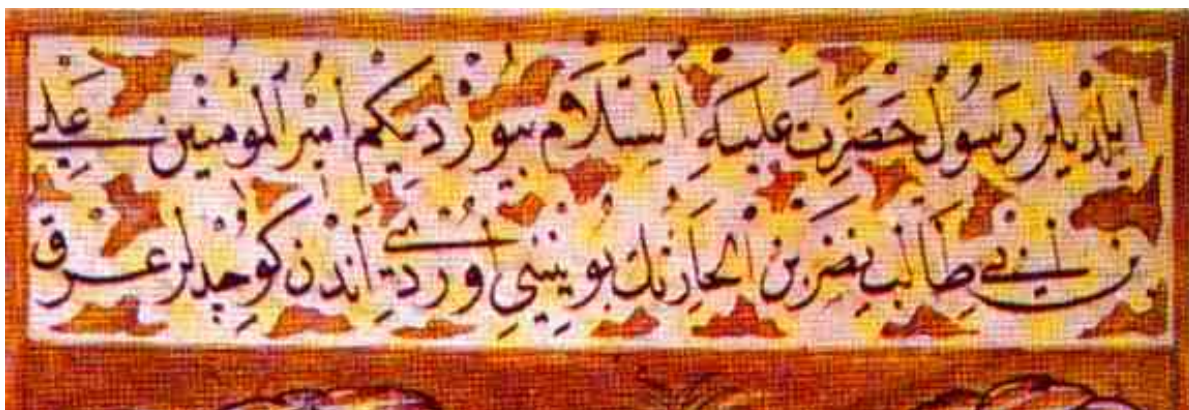 ايلديلر رسول حضرت عليه السلام سوردیکم امير المومنين علي
بن ابي طالب نضر بن الحارثك بويننی اوردی اندن كوچدلر عرق